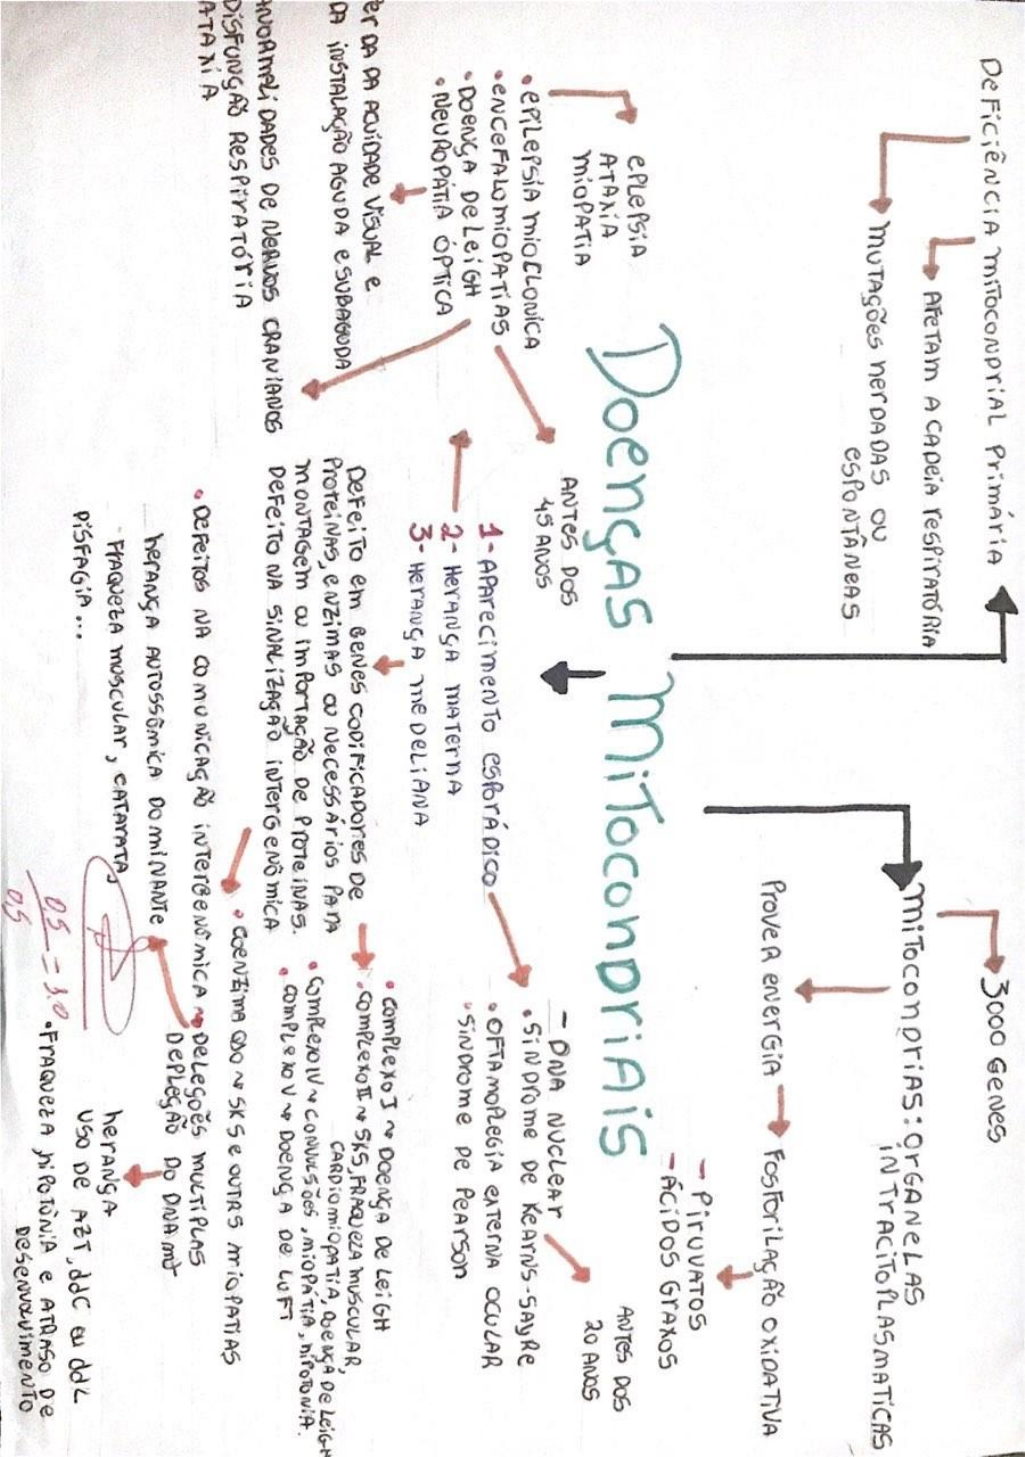 Doenças Mitocondriais
Deficiência mitocondrial primária
Afetam a cadeia respiratória
mutações herdadas ou
espontâneas
3000 genes
mitocondrias: organelas
intracitoplasmaticas
Prover energia
Fosforilação oxidativa
- Piruvatos
- Ácidos graxos
eplepsia
Ataxia
miopatia
• epilepsia mioclonica
• encefalomiopatias
• Doença de Leigh
• Neuropatia óptica
Antes dos
45 anos
erda da acuidade visual e
da instalação aguda e subaguda
anormalidades de nervos cranianos
disfunção respiratória
ataxia
1- Aparecimento esporádico
2- Herança materna
3- Herança medeliana
- DNA nuclear
• Síndrome de Kearns-Sayre
• Oftamoplegia externa ocular
• Síndrome de Pearson
Antes dos
20 anos
Defeito em genes codificadores de
proteínas, enzimas ou necessários para
montagem ou importação de proteinas.
Defeito na sinalização intergenômica
• Complexo I ~ Doença de Leigh
• Complexo II ~ SKS, Fraqueza muscular,
cardiomiopatia, doença de Leigh
• Complexo IV ~ convulsões, miopátia, hipotonia.
• Complexo V ~ Doença de Luft
• coenzima Q10 ~ SKS e outrs miopatias
• Defeitos na comunicação intergenômica ~ Deleções multiplas
Depleção do DNA mt
herança autossômica dominante
Fraqueza muscular, catarata,
disfagia...
herança
uso de AZT, ddC ou ddL
• Fraqueza, hipotônia e atraso de
desenvolvimento
0,5 = 1,0
0,5